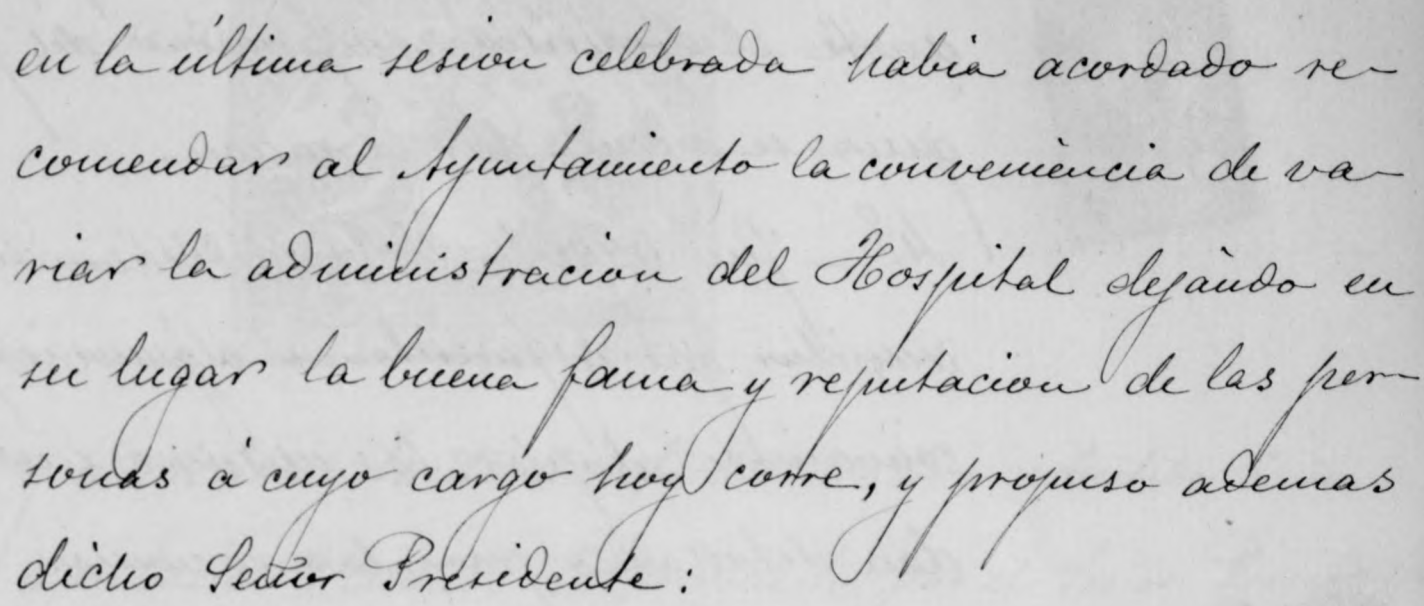 en la última sesion celebrada habia acordado re-
comendar al Ayuntamiento la conveniencia de va-
riar la administracion del Hospital dejándo en
su lugar la buena fama y reputacion de las per-
sonas á cuyo cargo hoy corre, y propuso ademas
dicho Señor Presidente: